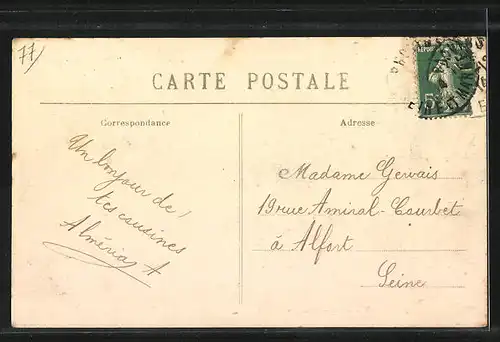 77
CARTE POSTALE
Correspondance
Adresse
Un bonjour de
tes cousines
Alméria A
Madame Gervais
19 rue Amiral-Courbet
à Alfort
Seine